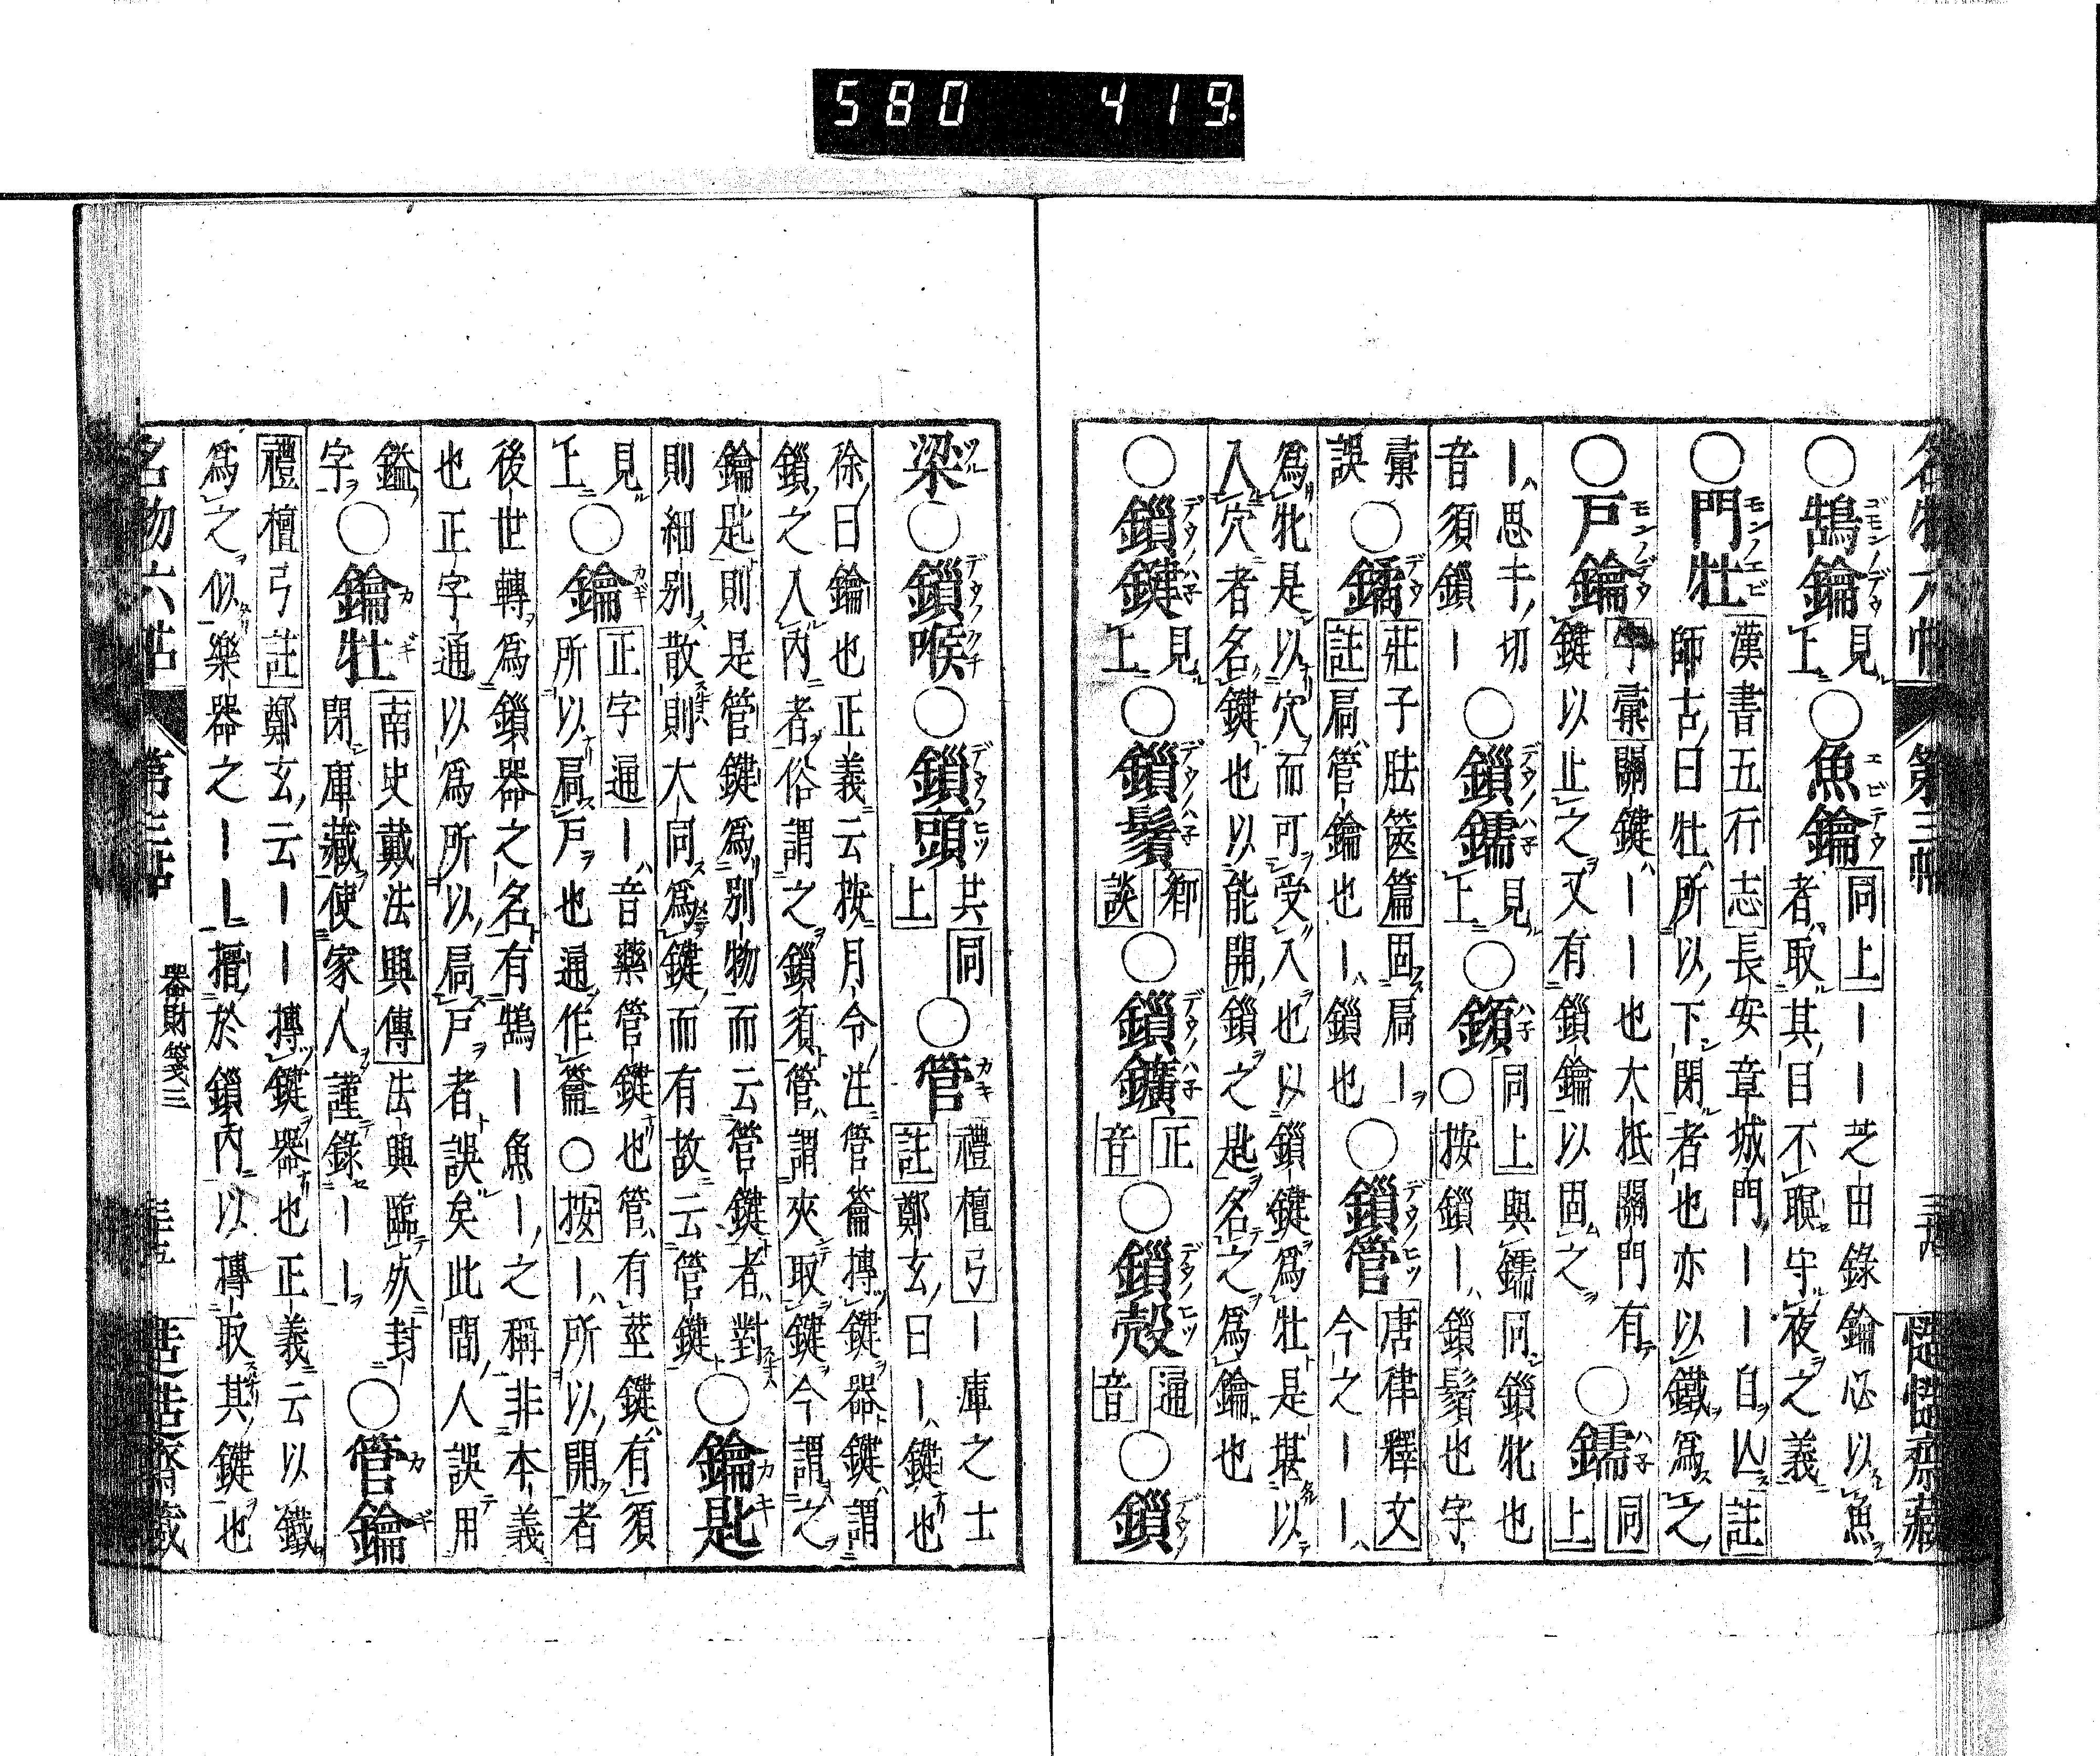 580 419.
名物六帖 第三帖 三十四 𢥠𢥠齋藏
○鵠鑰見上○魚鑰同上
――芝田錄鑰必以魚
者取其日不瞑守夜之義
○門牡漢書五行志長安章城門――自亡註
師古曰牡所以下閉者也亦以鐵爲之
○戶鑰字彙關鍵――也大抵關門有
鍵以止之又有鎖鑰以固之○鑐同上
―思于切○鎖鑐見上○鎖同上與鑐同鎖牝也
音須鎖―○按鎖―鎖鬚也字
彙誤○鐍莊子胠篋篇固扃―註扃管鑰也―鎖也○鎖管唐律釋文今之――
爲牝是以穴而可受入也以鎖鍵爲牡是堪以
入穴者名鍵也以能開鎖之匙名之爲鑰也
○鎖鍵見上○鎖鬚鄉談○鎖鑛正音○鎖殼通音○鎖
梁○鎖喉○鎖頭共同上○管禮檀弓―庫之士註鄭玄曰―鍵也
徐曰鑰也正義云按月令注管籥摶鍵器鍵謂
鎖之入內者俗謂之鎖須管謂夾取鍵今謂之
鑰匙則是管鍵爲別物而云管鍵者對
則細別散則大同爲鍵而有故云管鍵○鑰匙
見上○鑰正字通―音藥管鍵也管有莖鍵有須
所以扃戶也通作籥○按―所以開者
後世轉爲鎖器之名有鵠―魚―之稱非本義
也正字通以爲所以扃戶者誤矣此間人誤用
鎰字○鑰牡南史戴法興傳法興臨死封
閉庫藏使家人謹錄――○管鑰
禮檀弓註鄭玄云――摶鍵器也正義云以鐵
爲之似樂器之――搢於鎖內以摶取其鍵也
名物六帖 第三帖 器財箋三 三十五 𢥠𢥠齋藏